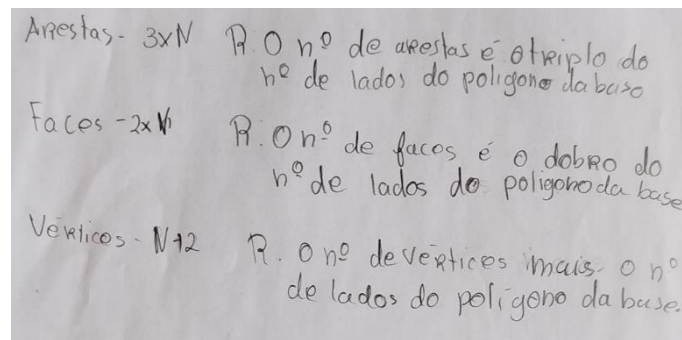 Arestas - 3xN R. O nº de arestas é o triplo do
nº de lados do poligono da base
Faces - 2xN R. O nº de faces é o dobro do
nº de lados do poligono da base
Vértices - N+2 R. O nº de vértices mais o nº
de lados do polígono da base.